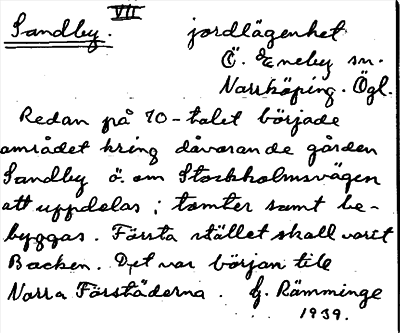 VII
Sandby. jordlägenhet
Ö. Eneby sn.
Norrköping. Ögl.
Redan på 70-talet började
området kring dåvarande gården
Sandby ö. om Stockholmsvägen
att uppdelas i tomter samt be-
byggas. Första stället skall varit
Backen. Det var början till
Norra Förstäderna. G. Rämminge
1939.